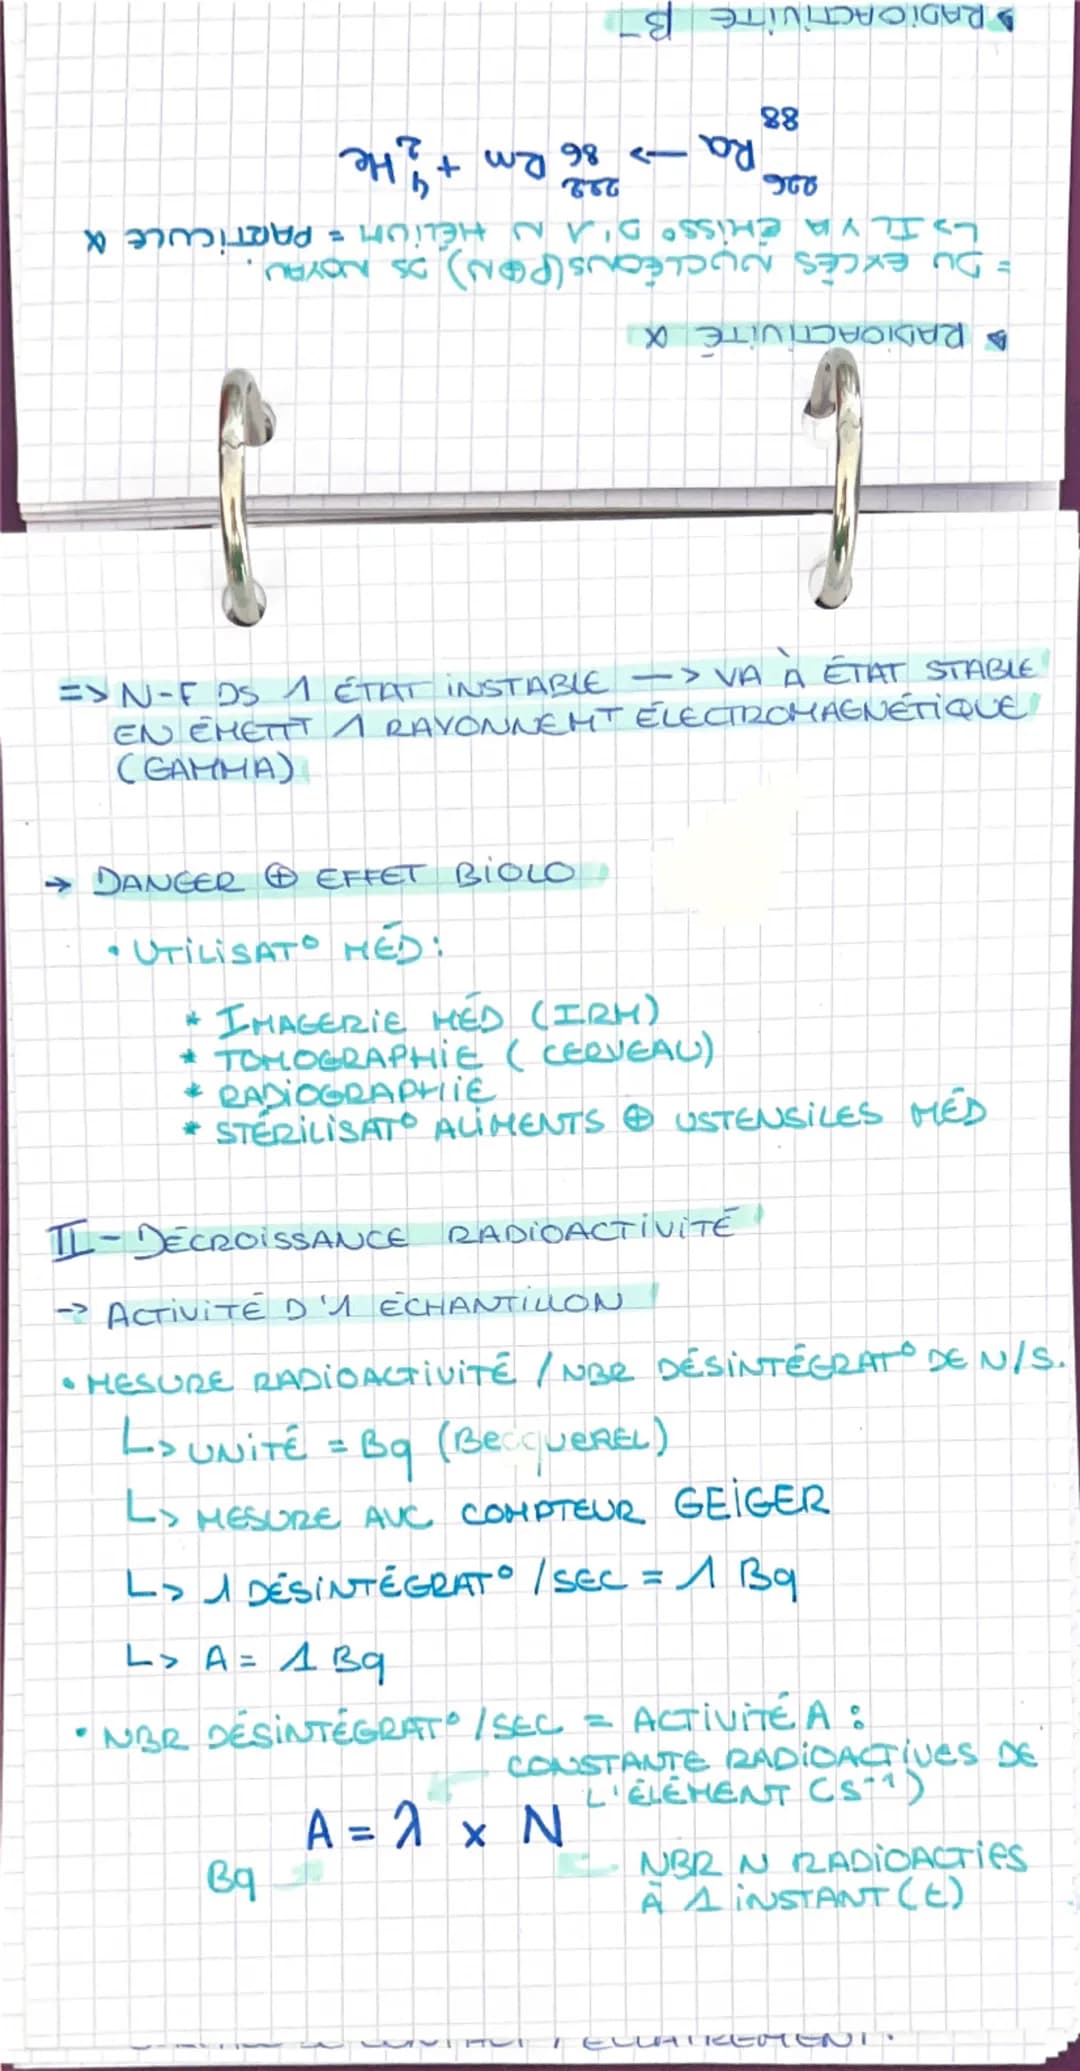 ▸ RADIOACTIVITÉ α
= DU EXCÈS NUCLÉONS (P⊕N) DS NOYAU.
↳ IL Y A ÉMISS° D'1 N HÉLIUM = PARTICULE α
226 88 Ra → 222 86 Rm + 4 2 He
▸ RADIOACTIVITÉ β-
=> N-F DS 1 ÉTAT INSTABLE —> VA À ÉTAT STABLE
EN ÉMETTT 1 RAYONNEMT ÉLECTROMAGNÉTIQUE
(GAMMA)
→ DANGER ⊕ EFFET BIOLO
• UTILISAT° MÉD :
* IMAGERIE MÉD (IRM)
* TOMOGRAPHIE ( CERVEAU)
* RADIOGRAPHIE
* STÉRILISAT° ALIMENTS ⊕ USTENSILES MÉD
II - DÉCROISSANCE RADIOACTIVITÉ
-> ACTIVITÉ D'1 ÉCHANTILLON
• MESURE RADIOACTIVITÉ / NBR DÉSINTÉGRAT° DE N/S.
↳ UNITÉ = Bq (BECQUEREL)
↳ MESURE AVC COMPTEUR GEIGER
↳ 1 DÉSINTÉGRAT° /SEC = 1 Bq
↳ A = 1 Bq
• NBR DÉSINTÉGRAT° /SEC = ACTIVITÉ A :
CONSTANTE RADIOACTIVES DE
L'ÉLÉMENT (S⁻¹)
A = λ x N
Bq
NBR N RADIOACTIFS
À 1 INSTANT (t)